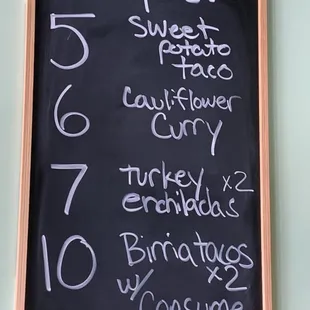 5 Sweet
potato
taco
6 Cauliflower
Curry
7 Turkey x2
enchiladas
10 Birria tacos
w/ x2
Consume